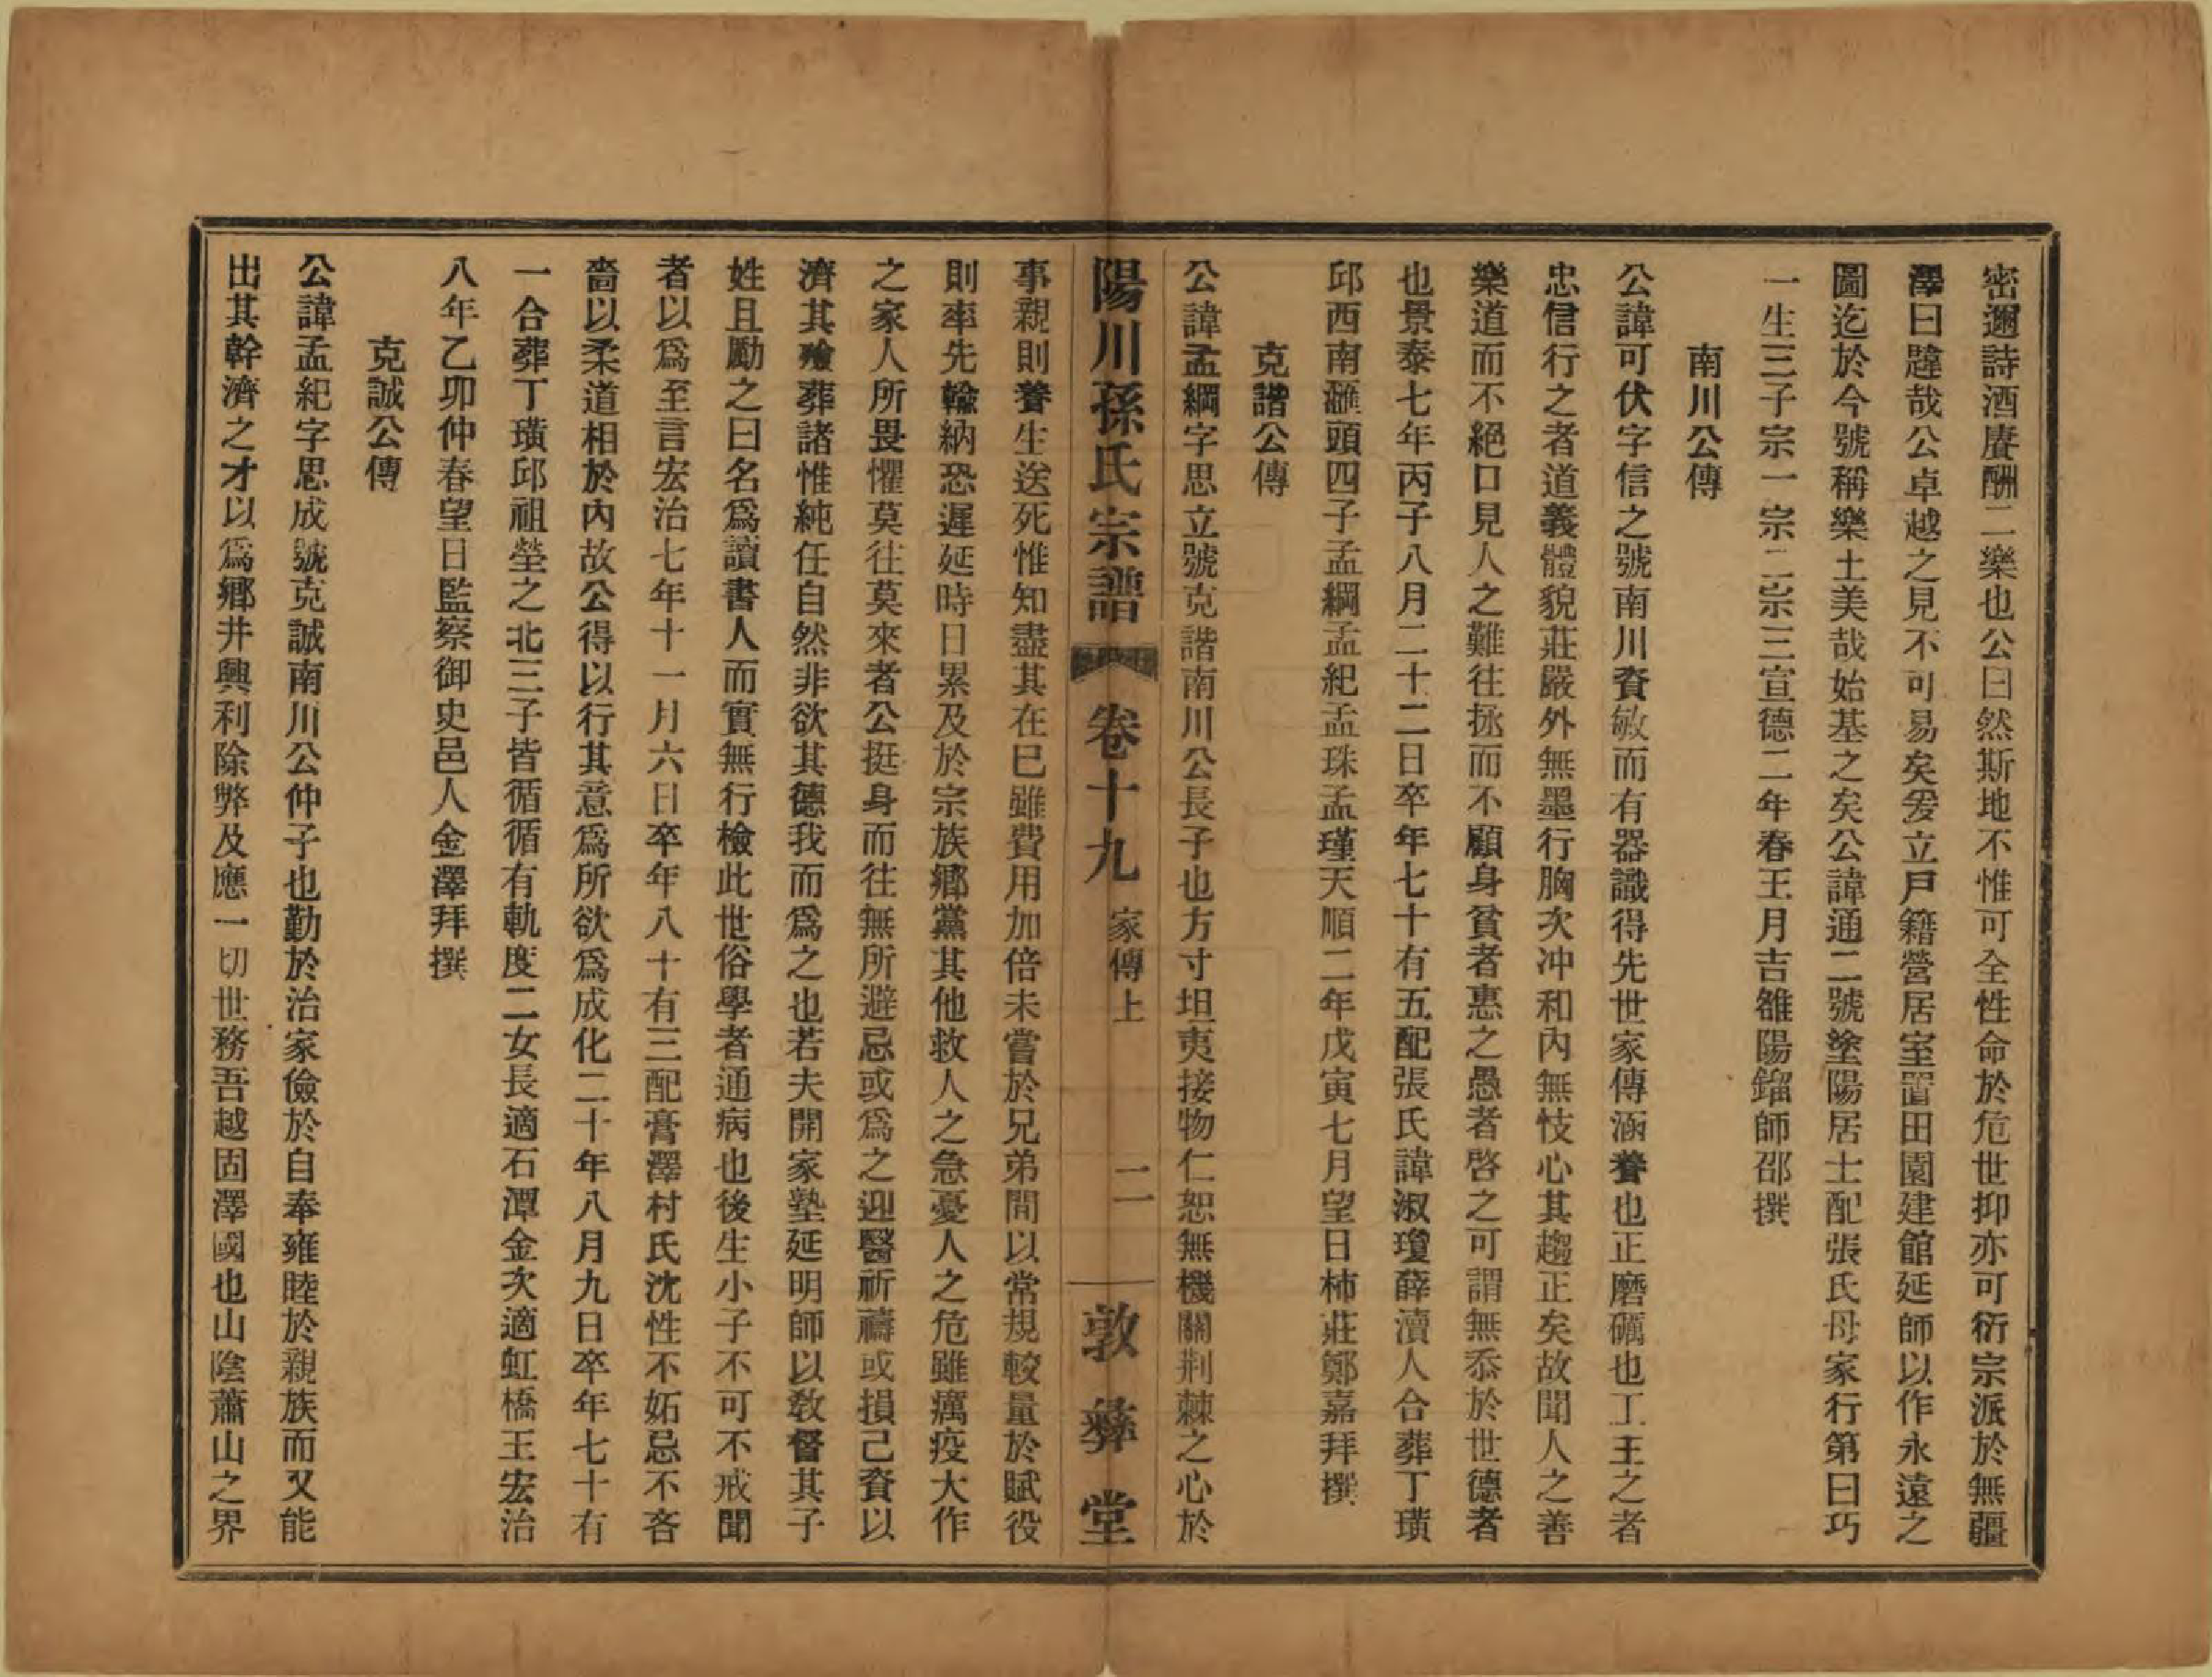 密邇詩酒賡酬二樂也公曰然斯地不惟可全性命於危世抑亦可衍宗派於無疆
澤曰韙哉公卓越之見不可易矣爰立戸籍營居室置田園建館延師以作永遠之
圖迄於今號稱樂土美哉始基之矣公諱通二號塗陽居士配張氏母家行第曰巧
一生三子宗一宗二宗三宣德二年春王月吉雒陽鎦師邵撰
南川公傳
公諱可伏字信之號南川資敏而有器識得先世家傳涵養也正磨礪也工王之者
忠信行之者道義體貌莊嚴外無墨行胸次冲和內無忮心其趨正矣故聞人之善
樂道而不絕口見人之難往拯而不顧身貧者惠之愚者啓之可謂無忝於世德者
也景泰七年丙子八月二十二日卒年七十有五配張氏諱淑瓊薛瀆人合葬丁璜
邱西南滙頭四子孟綱孟紀孟珠孟瑾天順二年戊寅七月望日柿莊鄭嘉拜撰
克諧公傳
公諱孟綱字思立號克諧南川公長子也方寸坦夷接物仁恕無機關荆棘之心於
陽川孫氏宗譜 卷十九 家傳上 二 敦彝堂
事親則養生送死惟知盡其在已雖費用加倍未嘗於兄弟間以常規較量於賦役
則率先輸納恐遲延時日累及於宗族鄉黨其他救人之急憂人之危雖癘疫大作
之家人所畏懼莫往莫來者公挺身而往無所避忌或爲之迎醫祈禱或損己資以
濟其殮葬諸惟純任自然非欲其德我而爲之也若夫開家塾延明師以敎督其子
姓且勵之曰名爲讀書人而實無行檢此世俗學者通病也後生小子不可不戒聞
者以爲至言宏治七年十一月六日卒年八十有三配膏澤村氏沈性不妬忌不吝
嗇以柔道相於內故公得以行其意爲所欲爲成化二十年八月九日卒年七十有
一合葬丁璜邱祖塋之北三子皆循循有軌度二女長適石潭金次適虹橋王宏治
八年乙卯仲春望日監察御史邑人金澤拜撰
克誠公傳
公諱孟紀字思成號克誠南川公仲子也勤於治家儉於自奉雍睦於親族而又能
出其幹濟之才以爲鄉井興利除弊及應一切世務吾越固澤國也山陰蕭山之界